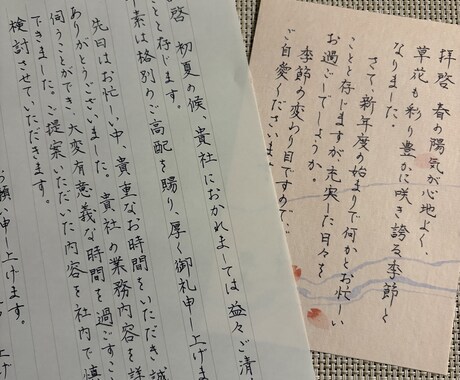 拝啓 春の陽気が心地よく、
草花も彩り豊かに咲き誇る季節と
なりました。
さて、新年度の始まりで何かとお忙しい
ことと存じますが充実した日々を
お過ごしでしょうか。
季節の変わり目ですので、
ご自愛くださいま
啓 初夏の候、貴社におかれましては益々ご清
ことと存じます。
素は格別のご高配を賜り、厚く御礼申し上げま
先日はお忙しい中、貴重なお時間をいただき誠
ありがとうございました。貴社の業務内容を詳
伺うことができ、大変有意義な時間を過ごすこ
できました。ご提案いただいた内容を社内で慎
検討させていただきます。
お願い申し上げます。